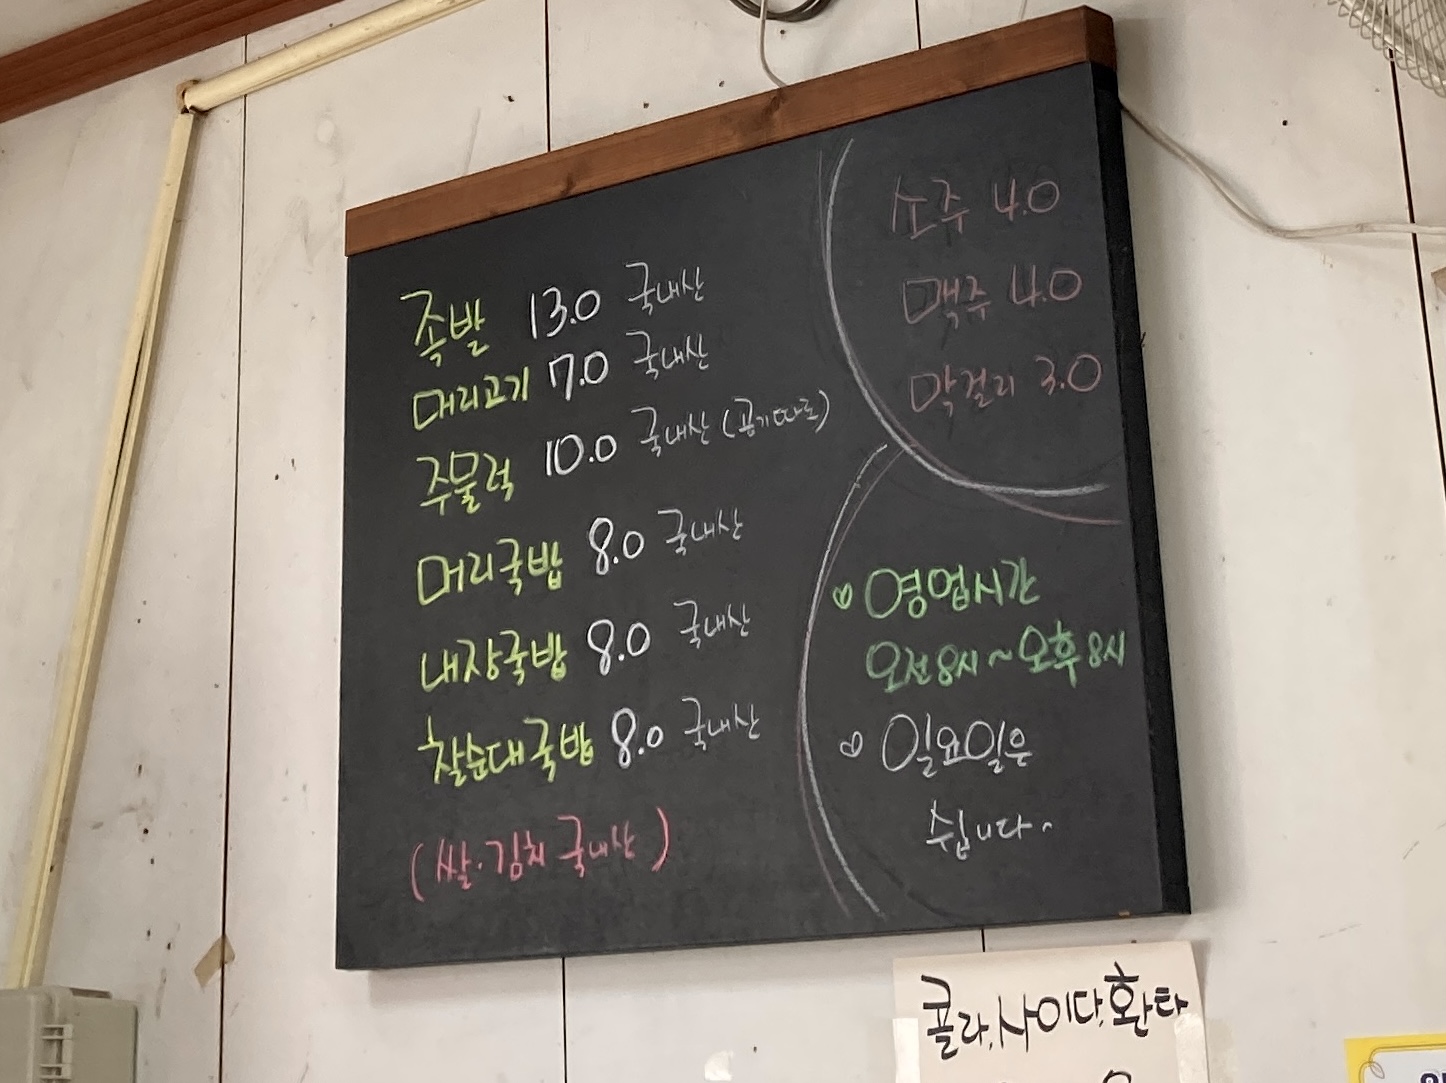 족발 13.0 국내산
머리고기 7.0 국내산
주물럭 10.0 국내산 (공기따로)
머리국밥 8.0 국내산
내장국밥 8.0 국내산
찰순대국밥 8.0 국내산
(쌀·김치 국내산)
소주 4.0
맥주 4.0
막걸리 3.0
♡ 영업시간
오전8시~오후8시
♡ 일요일은
쉽니다~
콜라,사이다,환타